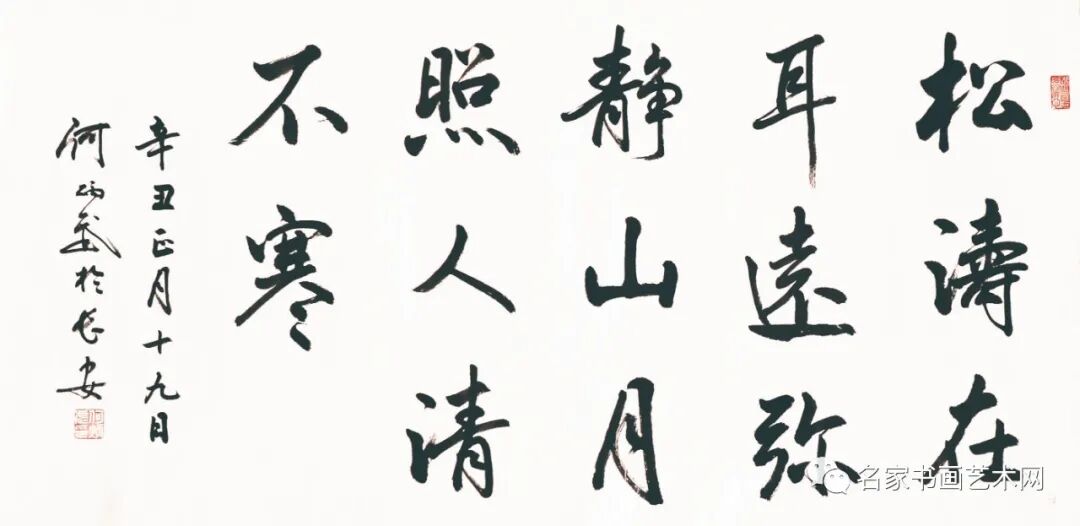 松濤在
耳遠弥
靜山月
照人清
不寒
辛丑正月十九日
何炳武於长安
名家书画艺术网